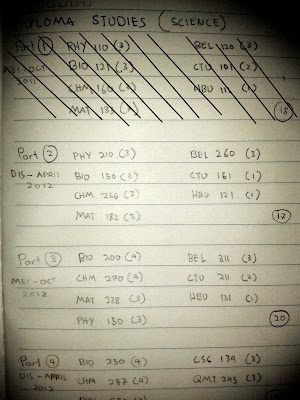 DIPLOMA STUDIES (SCIENCE)
Part 1 PHY 110 (3) BEL 120 (3)
MEI-OCT BIO 121 (3) CTU 101 (2)
2011 CHM 160 HBU 111
MAT 133 18
Part 2 PHY 210 (3) BEL 260 (3)
DIS-APRIL BIO 150 (3) CTU 161 (1)
2012 CHM (3) HBU 121 (1)
MAT 182 (3) 17
Part 3 BIO 200 (4) BEL 311 (3)
MEI-OCT CHM 270 (4) CTU 211 (2)
2012 MAT 238 (3) HBU 131 (1)
PHY 150 (3) 20
Part 4 BIO 230 (4) CSC 134 (3)
DIS-APRIL CHM 257 (4) QMT (3)